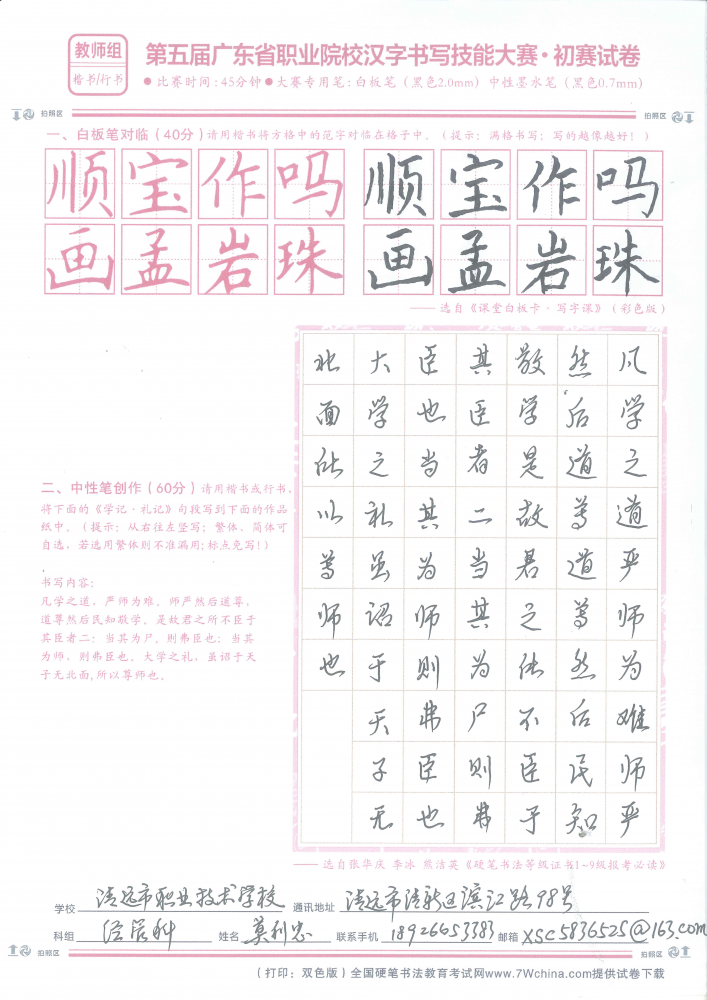 教师组
楷书/行书
第五届广东省职业院校汉字书写技能大赛·初赛试卷
●比赛时间：45分钟●大赛专用笔：白板笔（黑色2.0mm）中性墨水笔（黑色0.7mm）
拍照区
拍照区
一、白板笔对临（40分）请用楷书将方格中的范字对临在格子中。（提示：满格书写；写的越像越好！）
顺宝作吗
画孟岩珠
顺宝作吗
画孟岩珠
——选自《课堂白板卡·写字课》（彩色版）
二、中性笔创作（60分）请用楷书或行书，
将下面的《学记·礼记》句段写到下面的作品
纸中。（提示：从右往左竖写；繁体、简体可
自选，若选用繁体则不准漏用；标点免写！）
书写内容：
凡学之道，严师为难。师严然后道尊，
道尊然后民知敬学。是故君之所不臣于
其臣者二：当其为尸，则弗臣也；当其
为师，则弗臣也。大学之礼，虽诏于天
子无北面，所以尊师也。
凡学之道严师为难师严
然后道尊道尊然后民知
敬学是故君之所不臣于
其臣者二当其为尸则弗
臣也当其为师则弗臣也
大学之礼虽诏于天子无
北面所以尊师也
——选自张华庆 李冰 熊洁英《硬笔书法等级证书1~9级报考必读》
学校 清远市职业技术学校 通讯地址 清远市清新区滨江路98号
科组 经管科 姓名 莫利忠 联系手机 18926653383 邮箱 xsc5836525@163.com
拍照区
拍照区
（打印：双色版）全国硬笔书法教育考试网www.7Wchina.com提供试卷下载